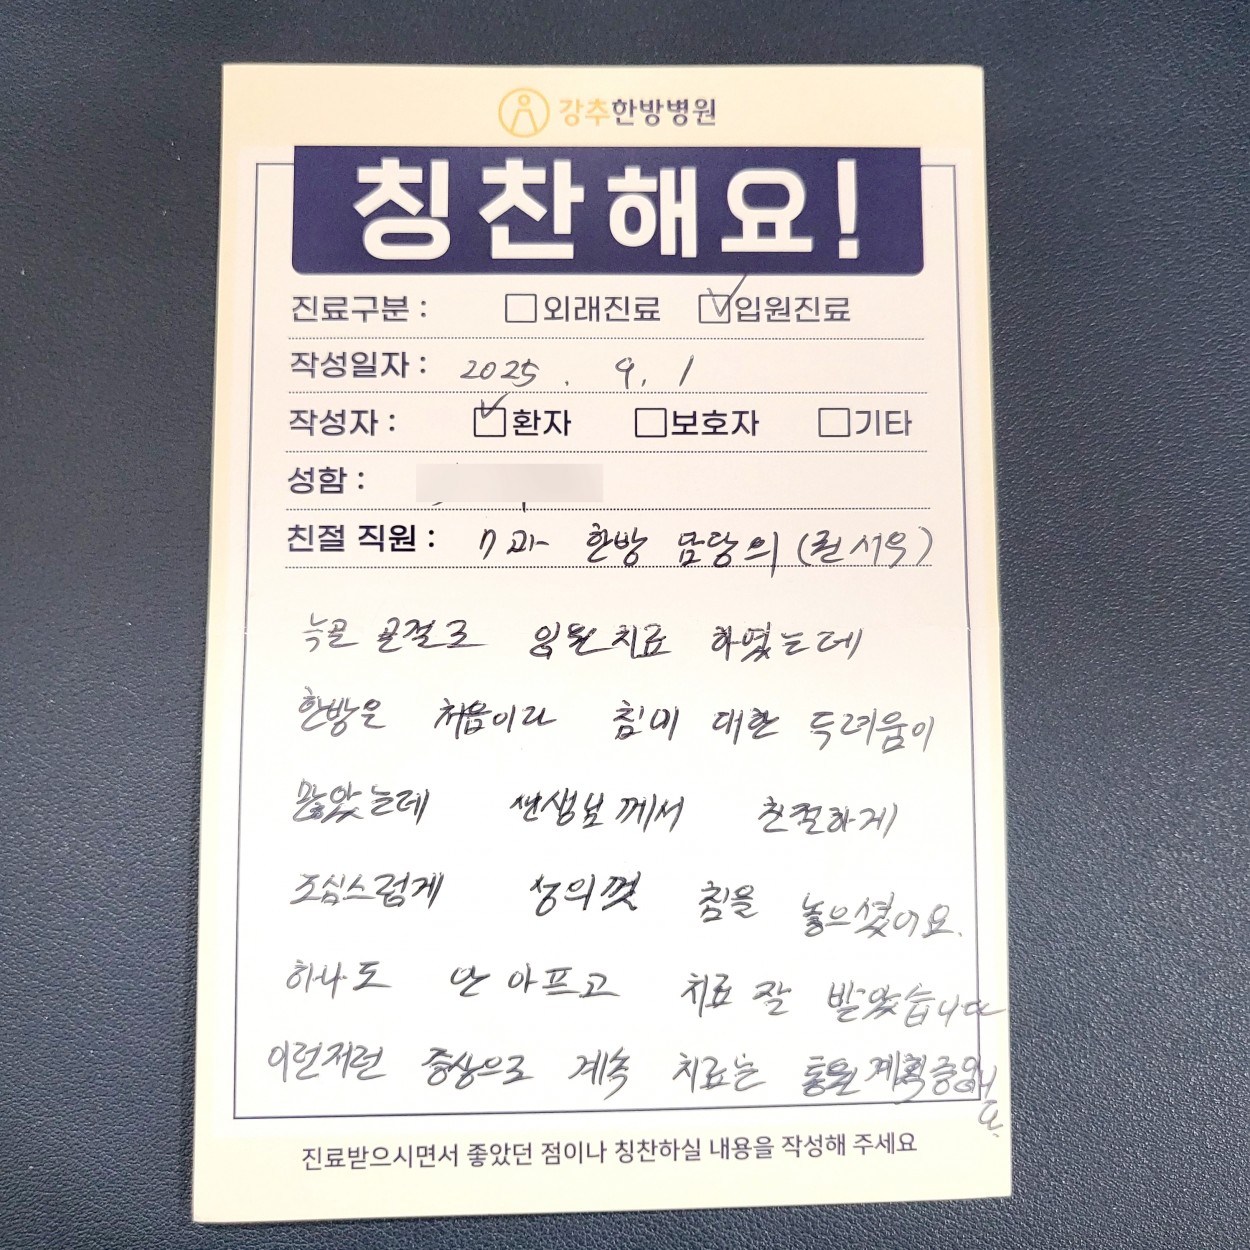 강추한방병원
칭찬해요!
진료구분 : 외래진료 입원진료
작성일자 : 2025. 9. 1
작성자 : 환자 보호자 기타
성함 :
친절 직원 : 7과 한방 담당의 (권서우)
늑골 골절로 입원치료 하였는데
한방은 처음이라 침에 대한 두려움이
많았는데 선생님께서 친절하게
조심스럽게 성의껏 침을 놓으셨어요.
하나도 안 아프고 치료 잘 받았습니다
이런저런 증상으로 계속 치료는 통원 계획중입니다.
진료받으시면서 좋았던 점이나 칭찬하실 내용을 작성해 주세요